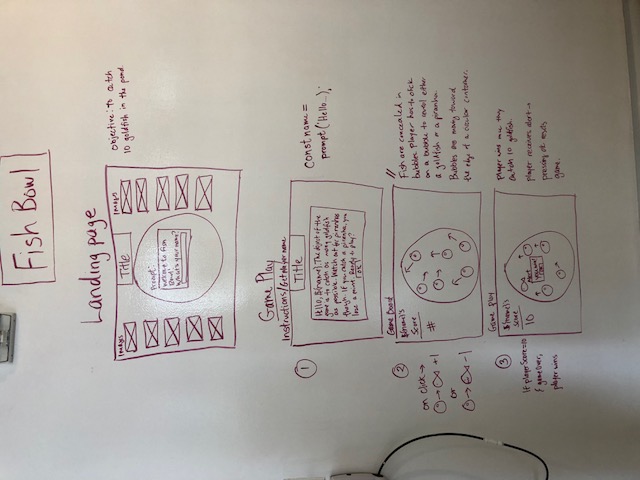 Fish Bowl
Landing page
Images
Title
Images
Prompt:
Welcome to Fish
Bowl!
What's your name?
Objective: To catch
10 goldfish in the pond.
Game Play
Instructions/Get player name
1
Title
Hello, ${name}. The object of the
game is to catch as many goldfish
as possible. Watch out for piranhas
though. If you catch a piranha, you
lose a point. Ready to play?
OK
const name =
prompt('Hello...');
2
Game Board
${name}'s
Score
#
on click →
→ +1
or
→ -1
//
Fish are concealed in
bubbles. Player has to click
on a bubble to reveal either
a goldfish or a piranha.
Bubbles are moving toward
the edge of a circular container.
3
Game play
${name}'s
Score
10
Alert
you won!
OK
If playerScore==10
& gameOver,
player wins
player wins once they
catch 10 goldfish.
player receives alert →
pressing ok resets
game.